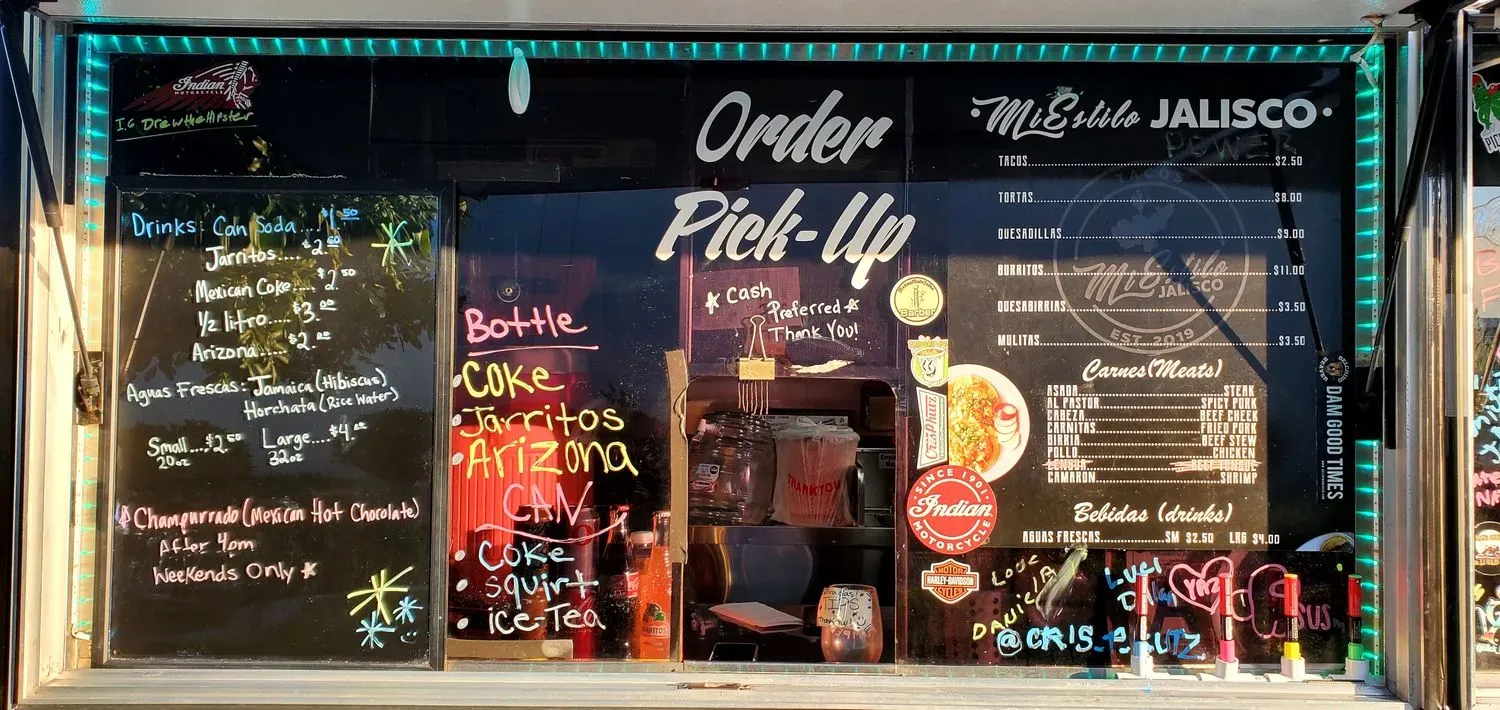 Indian
MOTORCYCLE
I.G DrewtheHipster
Drinks: Can Soda....$1.50
Jarritos.... $2.50
Mexican Coke....$2.50
1/2 litro....$3.00
Arizona....$2.00
Aguas Frescas: Jamaica (Hibiscus)
Horchata (Rice Water)
Small....$2.50 Large....$4.00
20oz 32oz
Champurrado (Mexican Hot Chocolate)
After 4pm
Weekends Only
Bottle
Coke
Jarritos
Arizona
CAN
Coke
squirt
ice-Tea
Order
Pick-Up
Cash
Preferred
Thank You!
Barber
CrisPhuz
SINCE 1901
Indian
MOTORCYCLE
MOTOR
HARLEY-DAVIDSON
CYCLES
THANK YOU
JARRITOS
TIPS
•MiEstilo JALISCO•
POWER
TACOS....$2.50
TORTAS....$8.00
QUESADILLAS....$9.00
BURRITOS....$11.00
QUESABIRRIAS....$3.50
MULITAS....$3.50
TACOS
MiEstilo
JALISCO
EST. 2019
Carnes(Meats)
ASADA....STEAK
AL PASTOR....SPICY PORK
CABEZA....BEEF CHEEK
CARNITAS....FRIED PORK
BIRRIA....BEEF STEW
POLLO....CHICKEN
LENGUA....BEEF TONGUE
CAMARON....SHRIMP
Bebidas (drinks)
AGUAS FRESCAS....SM $2.50 LRG $4.00
DAM GOOD TIMES
LOUE
DANiElA
Luci
@CRIS_PHUZ